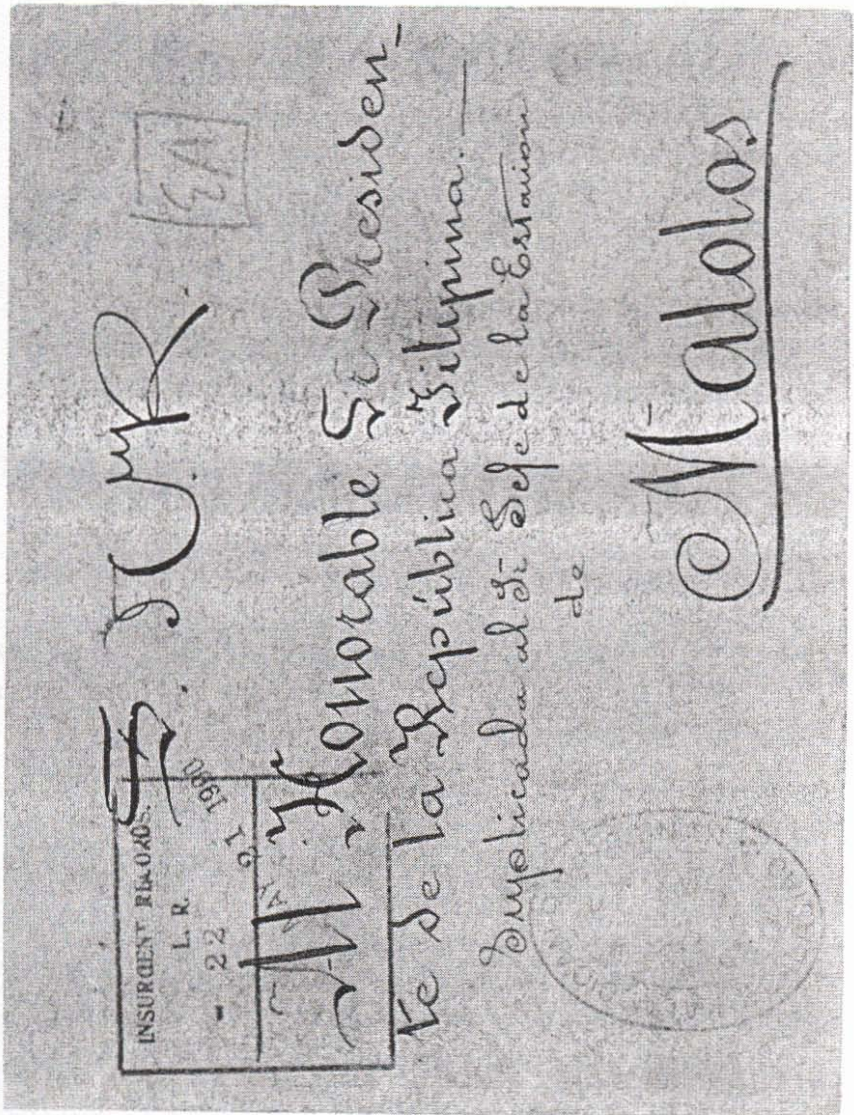 INSURGENT RECORDS.
L. R.
- 22
1900
EA
S. N. y R.
Al Honorable Sr. Presiden-
te de la República Filipina.—
Suplicada al Sr. Jefe de la Estacion
de
Malolos